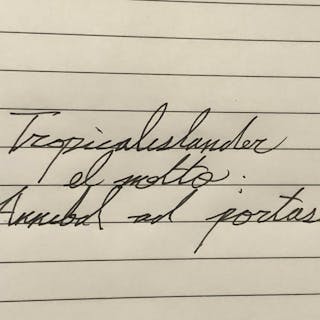 Tropicalislander
el motto.
Annibal ad portas